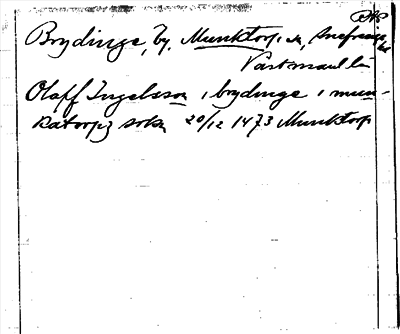 Brydinge, by, Munktorp, sn, Snefringe
hd
Västmanl. län
Olaff Ingelsson i brydinge i mun-
katorpz sokn 20/12 1473 Munktorp